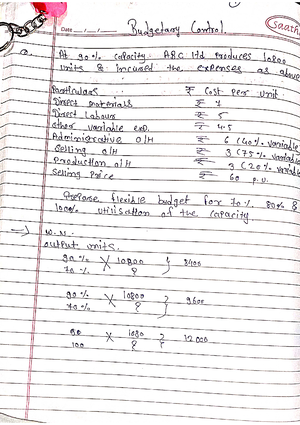 Saath
Date __/__/__ Budgetary Control.
Q. At 90% capacity. ABC ltd produces 10800
units & incurred the expenses as above
Particulars ₹ Cost per Unit.
Direct materials ₹ 7
Direct Labour ₹ 5
other variable exp. ₹ 4.5
Administrative O/H ₹ 6 (40% variable
Selling O/H ₹ 3 (75% variable
Production O/H ₹ 3 (20% variable
Selling Price ₹ 60 p.u.
Prepare flexible budget for 70% 80% &
100% utilisation of the capacity.
→ W.N.
output units.
90% × 10800 } 8400
70% ?
90% × 10800 } 9600
70% ?
90 × 1080 } 12000
100 ?